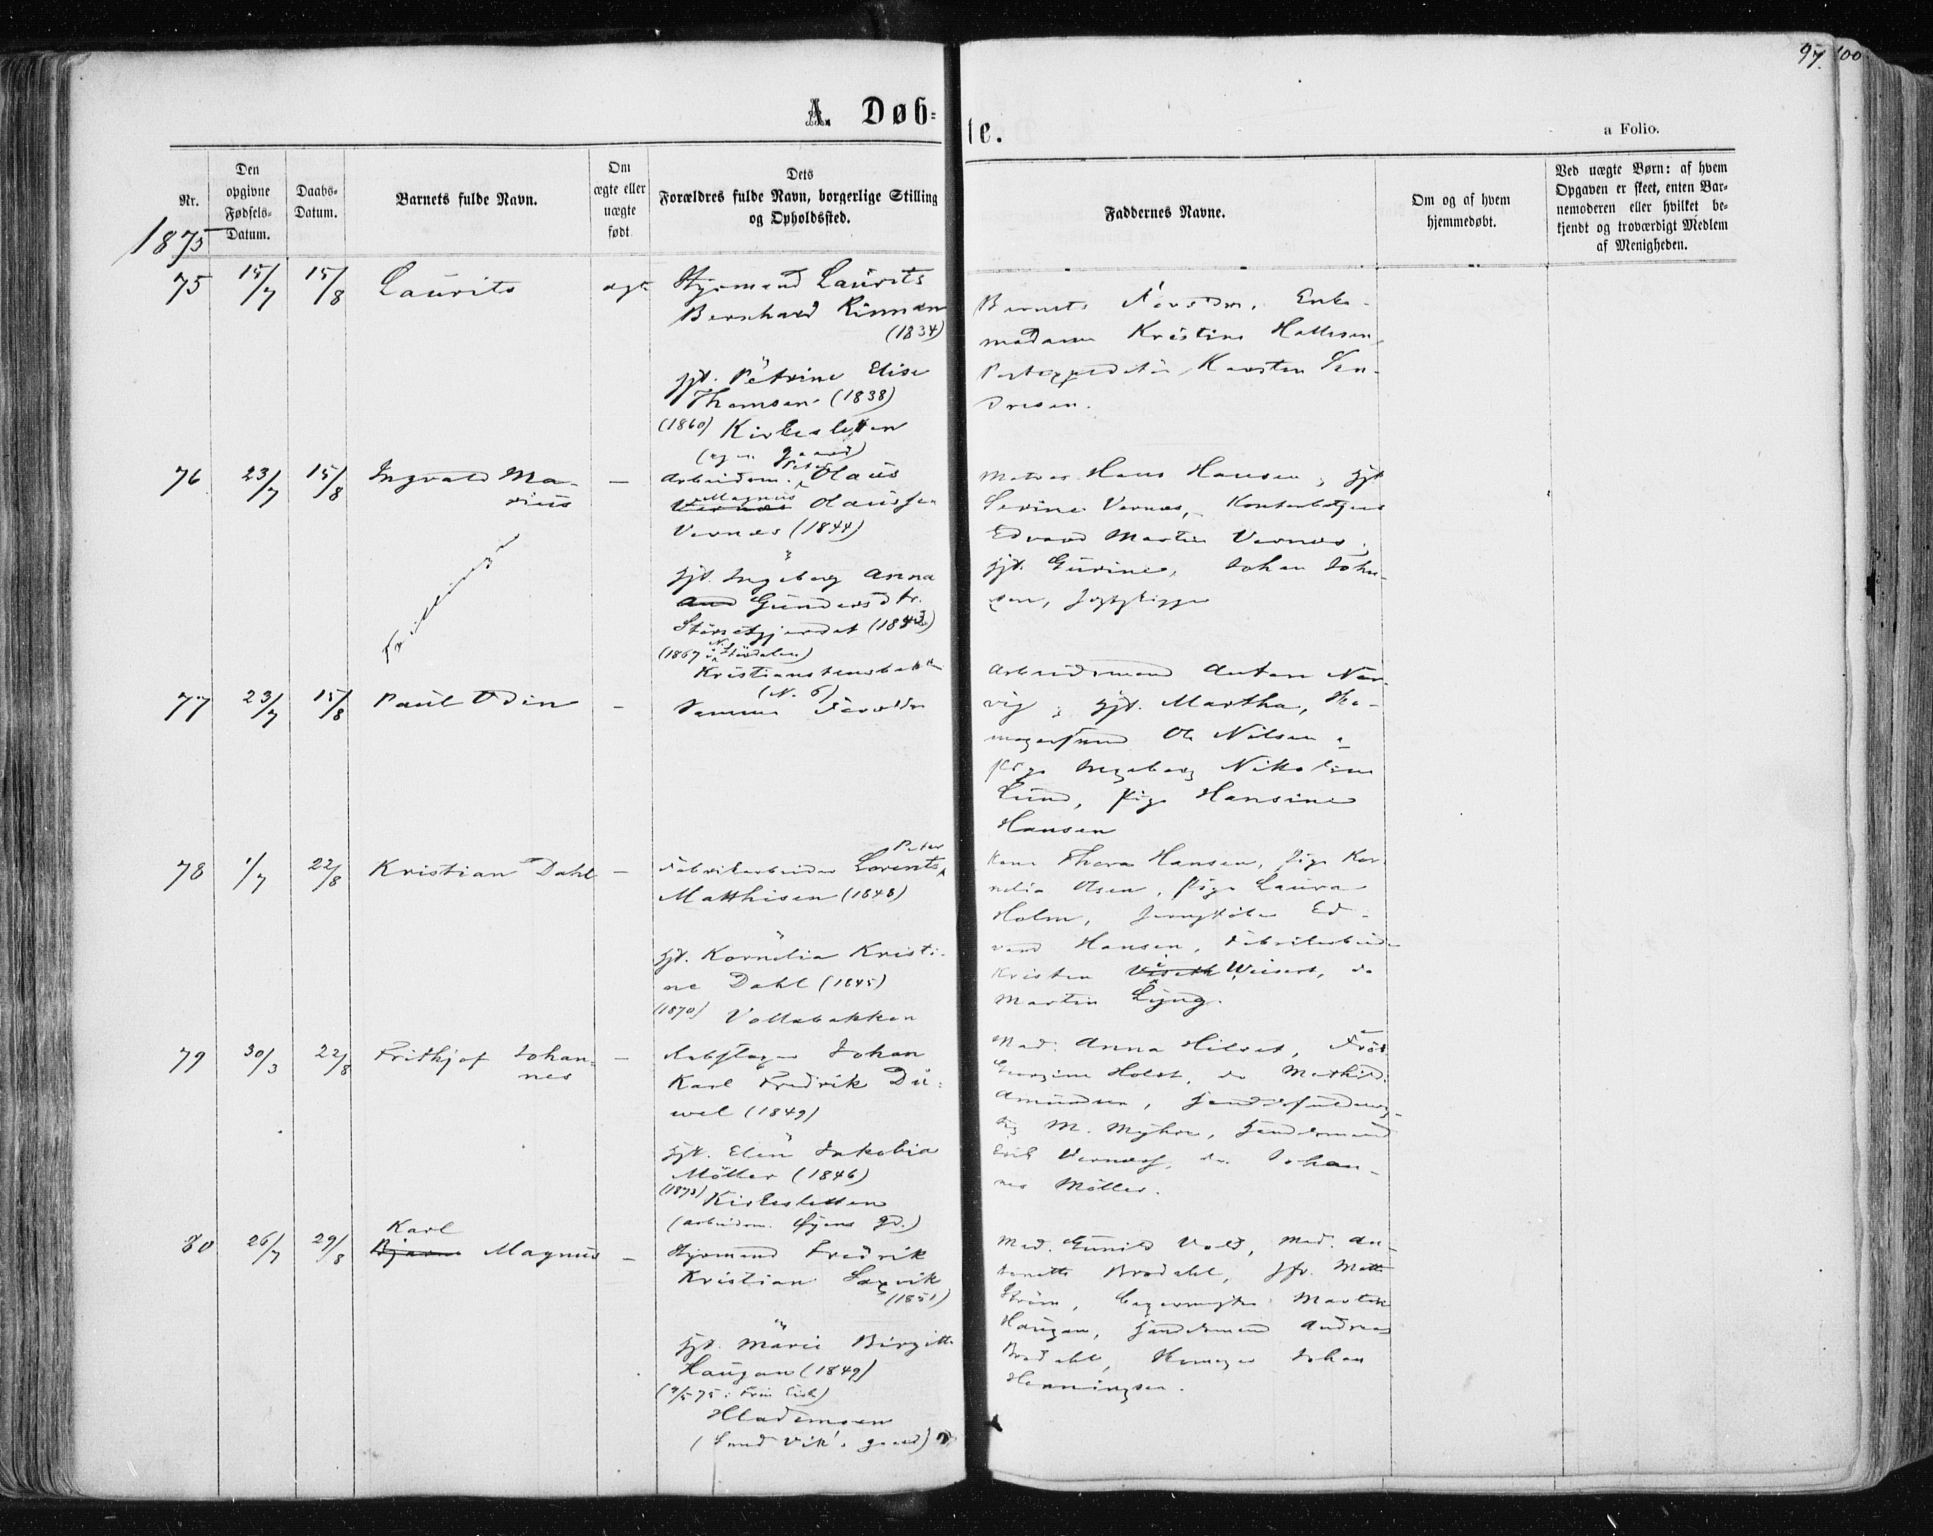 97. 100
A. Døbte.
a Folio.
Nr.
Den opgivne Fødsels-Datum.
Daabs-Datum.
Barnets fulde Navn.
Om ægte eller uægte født
Dets Forældres fulde Navn, borgerlige Stilling og Opholdssted.
Faddernes Navne.
Om og af hvem hjemmedøbt.
Ved uægte Børn: af hvem Opgaven er skeet, enten Barnemoderen eller hvilket bekjendt og troværdigt Medlem af Menigheden.
1875
75 15/7 15/8 Laurits ægt. Styrmand Laurits
Bernhard Rinman
(1834)
gft. Petrine Elise
Thomsen (1838)
(1860) Kirkesletten
(egen gaard)
Barnets Forældre, Enke-
madame Kristine Hallesen,
Postexpeditør Karsten
76 23/7 15/8 Ingvald Ma-
rius
Tvillinger
— Arbeidsm. Peter Olaus
Vernæs Magnus Olaussen
Vernæs (1844)
gft. Ingeborg Anna
Gundersdtr.
(1867 i N. Stördalen)
Kristianstensbakken
(N. 6)
Matros Hans Hansen, gft
Serine Vernæs, Kontorbetjent
Edvard Martin Vernæs,
gft. Gurine, Johan John-
sen,
77 23/7 15/8 Paul Odin — Samme Forældre
Arbeidsmand Anton Nar-
vig, gft. Martha, Sko-
magersvend Ole Nilsen,
Pige Ingeborg Nikoline
Lund, Pige Hansine
Hansen
78 1/7 22/8 Kristian Dahl — Fabrikarbeider Lorents Peter
Matthisen (1848)
gft. Kornelia Kristi-
ne Dahl (1845)
(1870) Vollabakken
Kone Thora Hansen, Pige Kor-
nelia Olsen, Pige Laura
Holm, Ed-
vard Hansen, Fabrikarbeider
Kristen Weisert, do
Martin Ljung.
79 30/3 22/8 Frithjof Johan-
nes
— Rebslager Johan
Karl Fredrik Dü-
wel (1849)
gft. Elen Jakobia
Möller (1846)
(1873) Kirkesletten
(arbeidsm. Øyens gd.)
Mad. Anna Hilset, Frök.
Georgine Holst, do Mathilde
Amundsen, Handelsfuldmæg-
tig M. Myhre, Handelsmand
Erik Vernæs, do. Johan-
nes Möller.
80 26/7 29/8 Karl
Bjarne Magnus — Styrmand Fredrik
Kristian Saxvik
(1851)
gft. Marie Birgitte
Haugan (1849)
Hlademoen
(Sandvik's gaard)
Mad. Gunild Vold, Mad. An-
tonette Brodahl, Jfr. Mette
Ström, Martin
Haugan, Handelsmand Andreas
Brodahl, Skomager Johan
Henningsen.